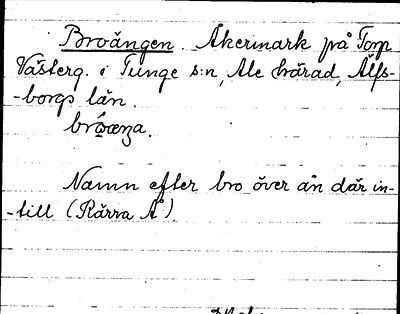 Broängen. Åkermark på Torp
Västerg. i Tunge s:n, Ale härad, Älfs-
-borgs län.
Namn efter bro över ån där in-
-till (Kärra Å).